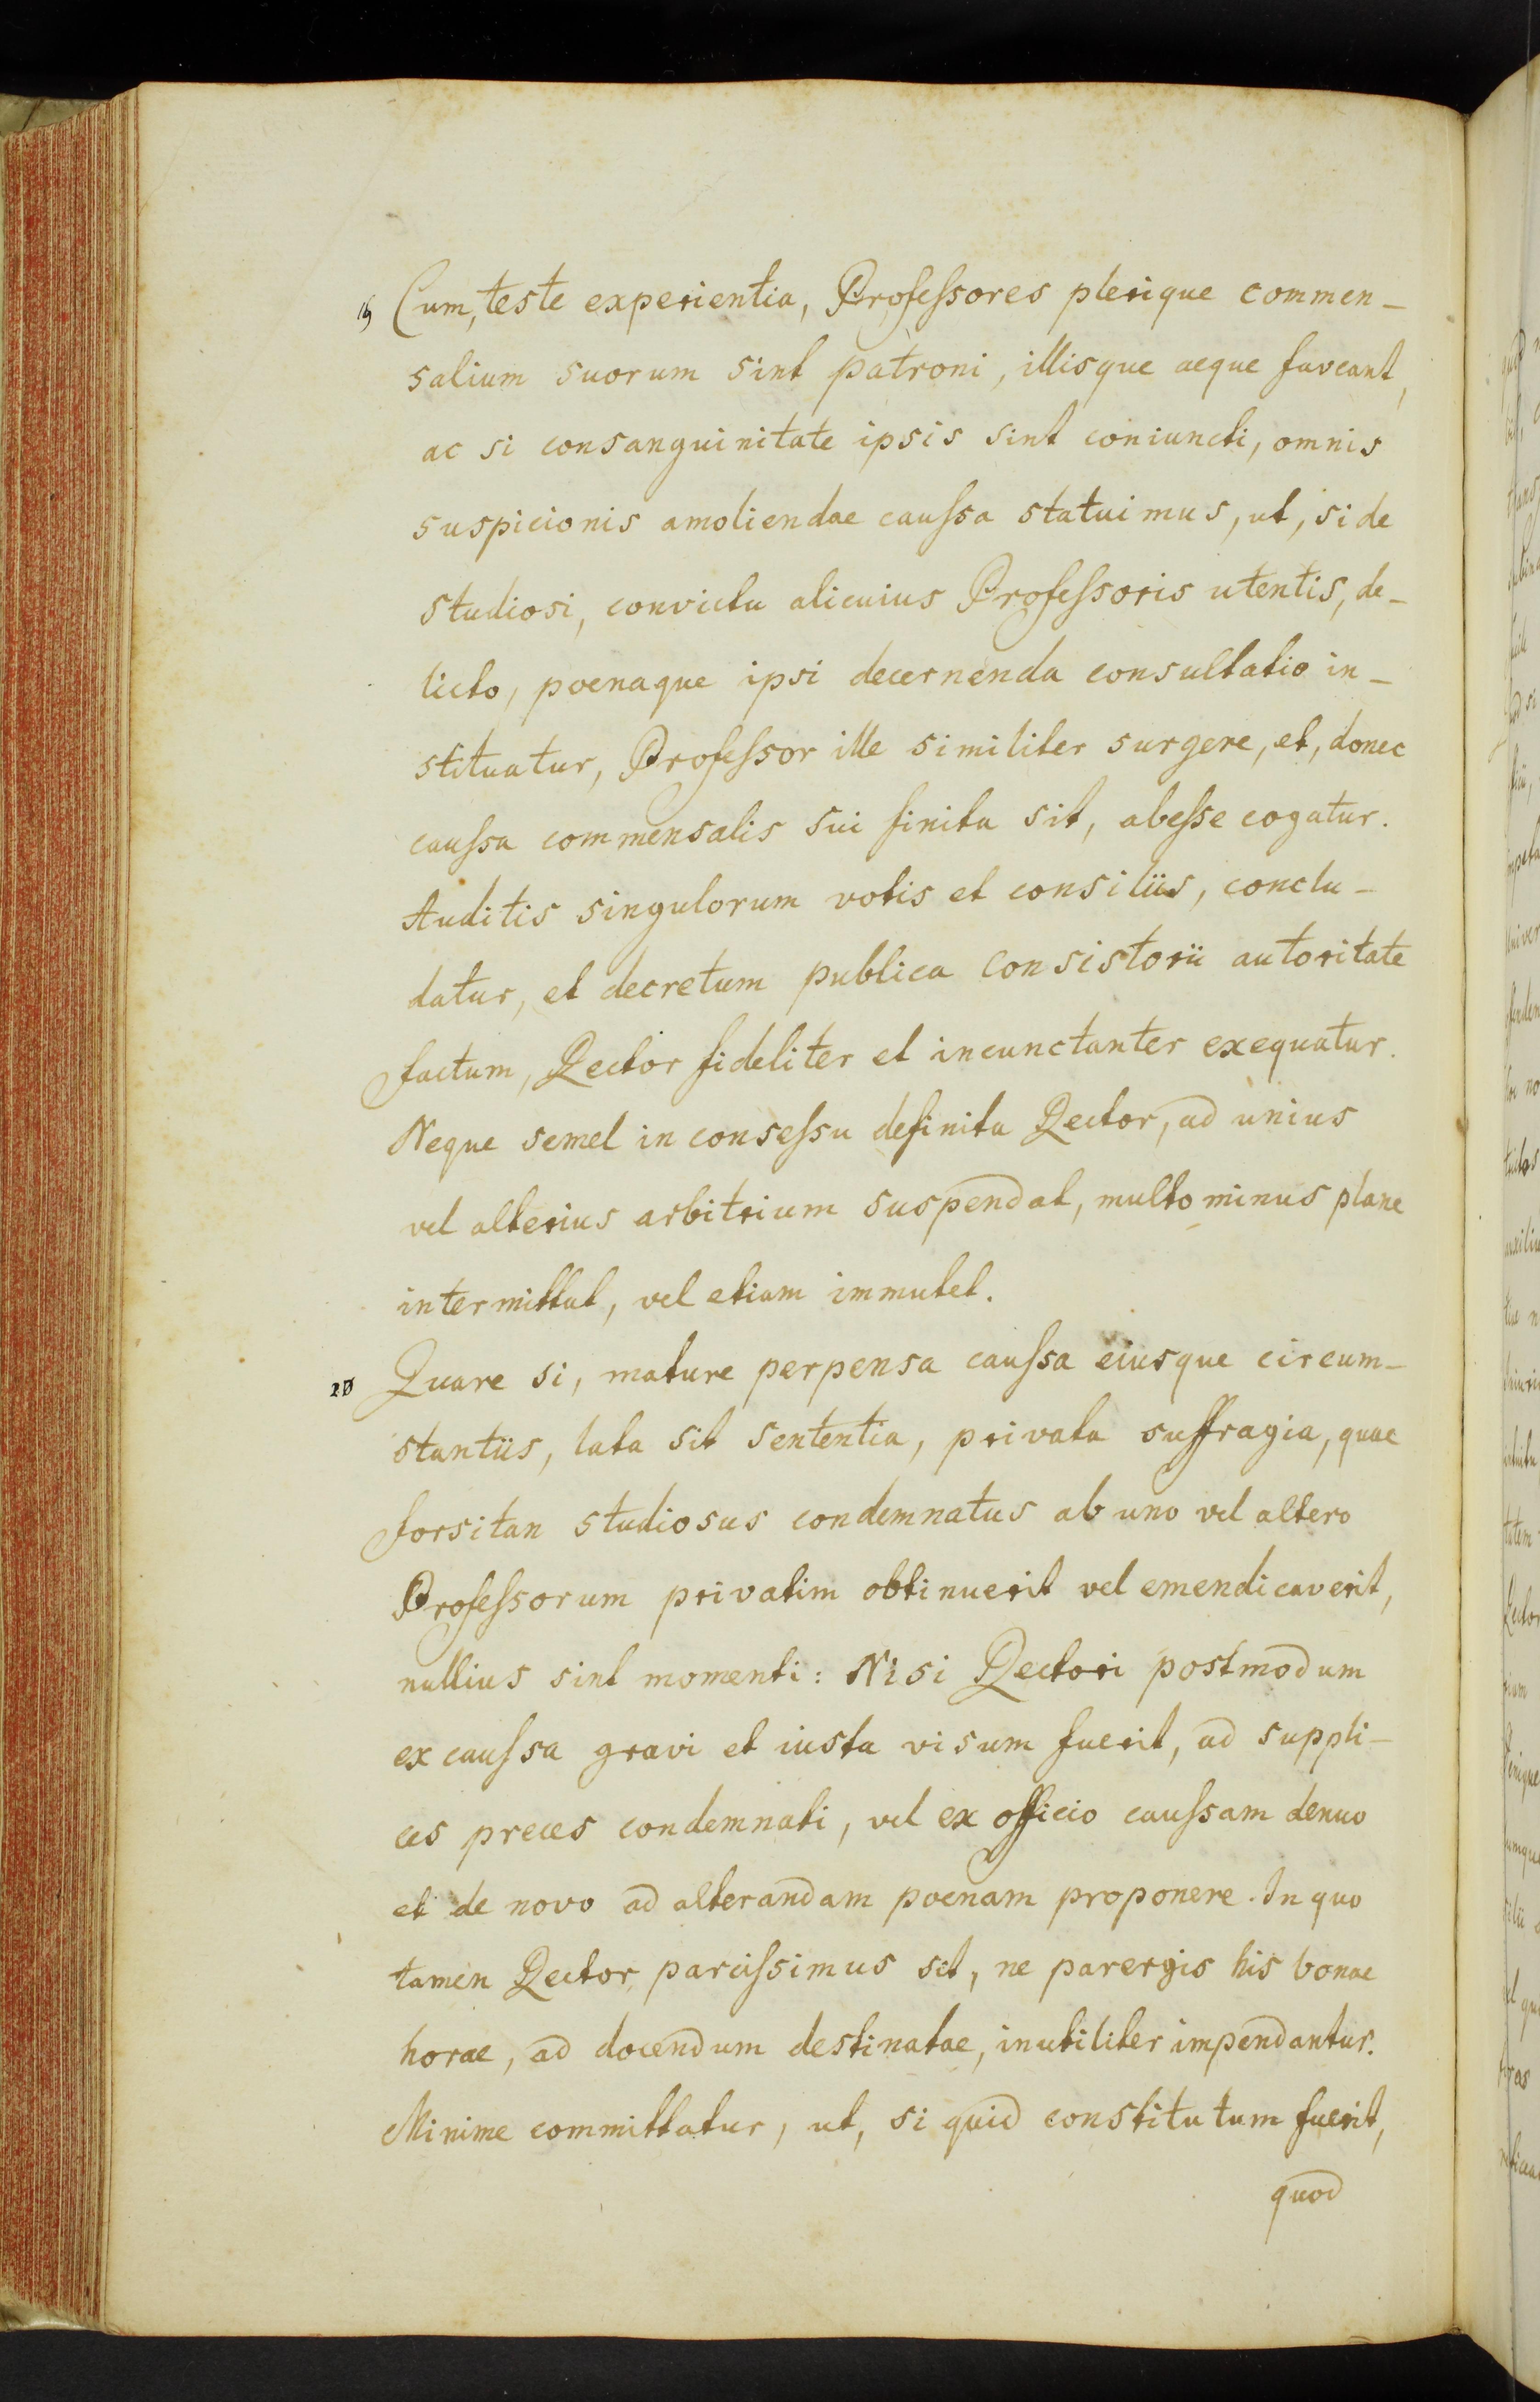 19 Cum, teste experientia, Professores plerique commen-
salium suorum sint patroni, illisque aeque faveant,
ac si consanguinitate ipsis sint coniuncti, omnis
suspicionis amoliendae caussa statuimus, ut, si de
studiosi, convictu alicuius Professoris utentis, de-
licto, poenaque ipsi decernenda consultatio in-
stituatur, Professor ille similiter surgere, et, donec
caussa commensalis sui finita sit, abesse cogatur.
Auditis singulorum votis et consiliis, conclu-
datur, et decretum publica Consistorii autoritate
factum, Rector fideliter et incunctanter exequatur.
Neque semel in consessu definita Rector, ad unius
vel alterius arbitrium suspendat, multo minus plane
intermittat, vel etiam immutet.
20 Quare si, mature perpensa caussa eiusque circum-
stantiis, lata sit sententia, privata suffragia, quae
forsitan studiosus condemnatus ab uno vel altero
Professorum privatim obtinuerit vel emendicaverit,
nullius sint momenti: Nisi Rectori postmodum
ex caussa gravi et iusta visum fuerit, ad suppli-
ces preces condemnati, vel ex officio caussam denuo
et de novo ad alterandam poenam proponere. In quo
tamen Rector parcissimus sit, ne parergis his bonae
horae, ad docendum destinatae, inutiliter impendantur.
Minime committatur, ut, si quid constitutum fuerit,
quod